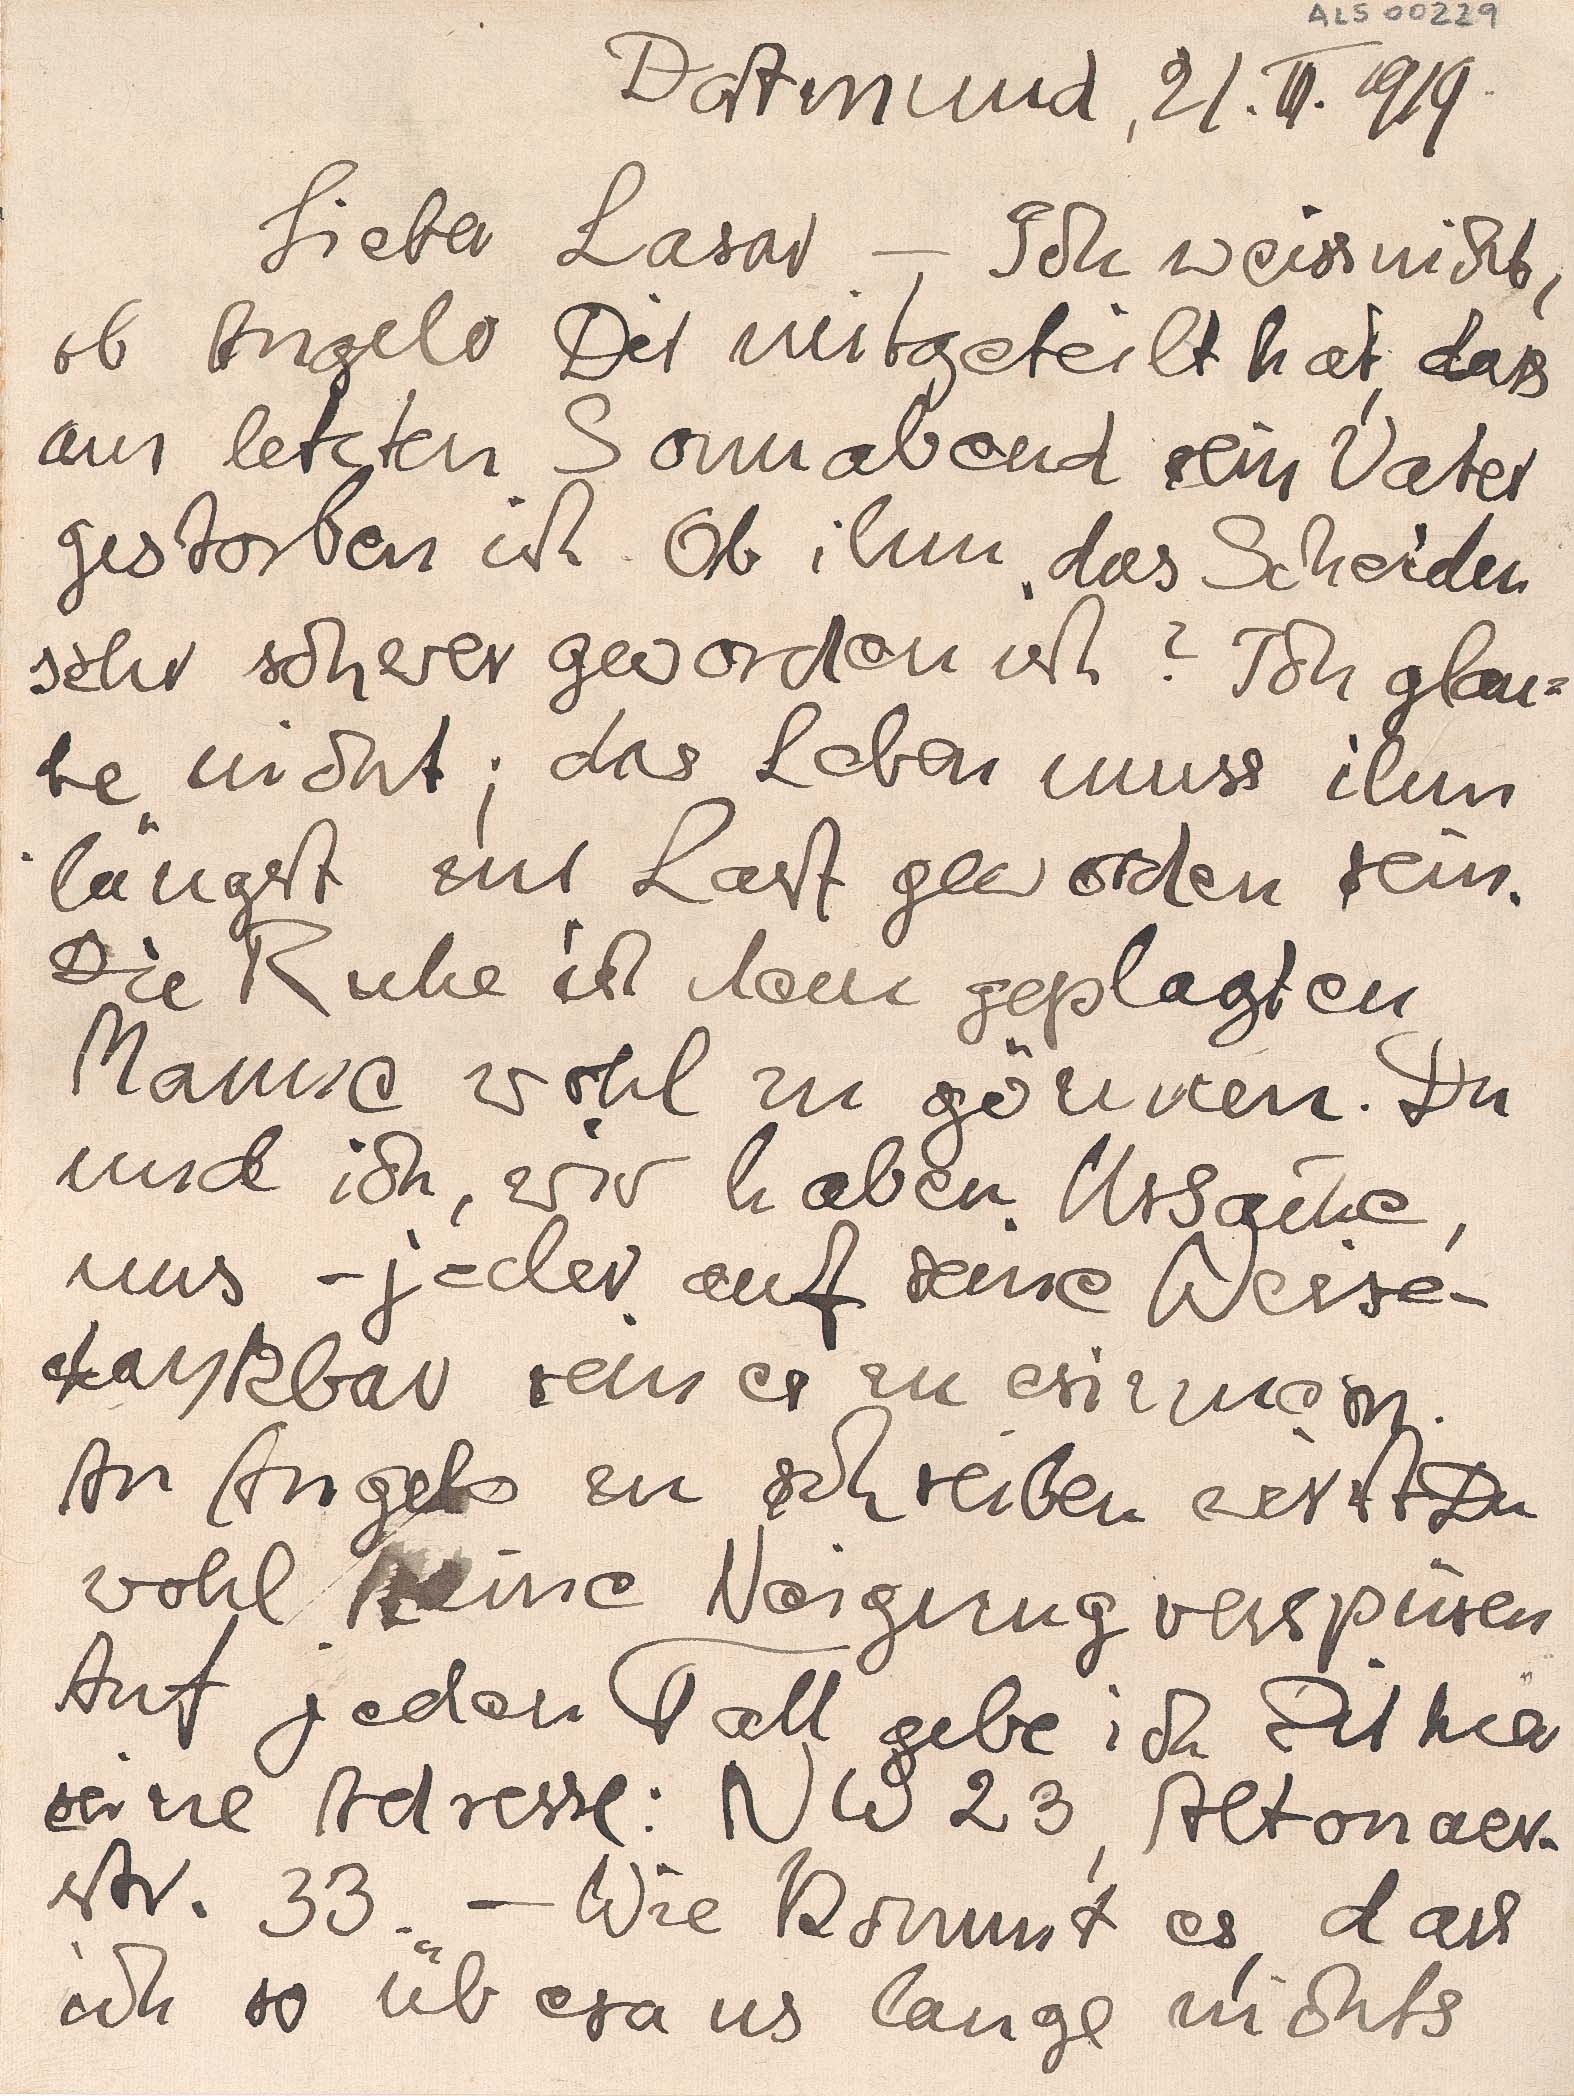 ALS 00229
Dortmund, 21. III. 1919.
Lieber Lasar — Ich weiss nicht,
ob Angelo Dir mitgeteilt hat, dass
am letzten Sonnabend sein Vater
gestorben ist. Ob ihm das Scheiden
sehr schwer geworden ist? Ich glau=
be nicht; das Leben muss ihm
längst zur Last geworden sein.
Die Ruhe ist dem geplagten
Manne wohl zu gönnen. Du
und ich, wir haben Ursache,
uns - jeder auf seine Weise -
dankbar seiner zu erinnern.
An Angelo zu schreiben wirst Du
wohl keine Neigung verspüren
Auf jeden Fall gebe ich Dir hier
seine Adresse: NW 23, Altonaer-
str. 33. — Wie kommt es, dass
ich so überaus lange nichts